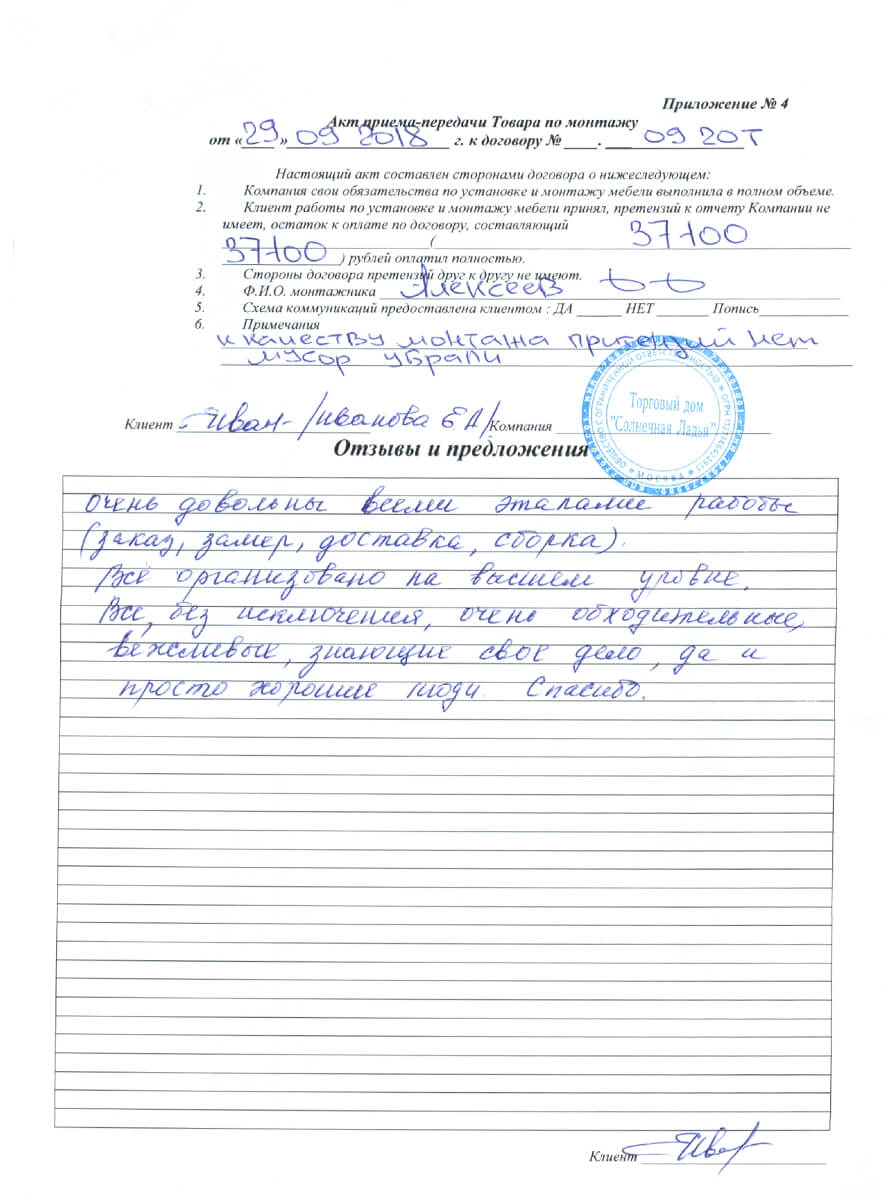 Приложение № 4
Акт приема-передачи Товара по монтажу
от «29» 09 2018 г. к договору № ____. 09 20Т
Настоящий акт составлен сторонами договора о нижеследующем:
1. Компания свои обязательства по установке и монтажу мебели выполнила в полном объеме.
2. Клиент работы по установке и монтажу мебели принял, претензий к отчету Компании не
имеет, остаток к оплате по договору, составляющий 37100
( 37100 ) рублей оплатил полностью.
3. Стороны договора претензий друг к другу не имеют.
4. Ф.И.О. монтажника Алексеев
5. Схема коммуникаций предоставлена клиентом : ДА ______ НЕТ _______ Попись____________
6. Примечания
к качеству монтажа притензий нет
мусор убрали
Клиент Иван- /Иванова Е А/ Компания
Торговый дом
"Солнечная Ладья"
ОБЩЕСТВО С ОГРАНИЧЕННОЙ ОТВЕТСТВЕННОСТЬЮ
МОСКВА
Отзывы и предложения
Очень довольны всеми этапами работы
(заказ, замер, доставка, сборка).
Всё организовано на высшем уровне.
Все, без исключения, очень обходительные,
вежливые, знающие свое дело, да и
просто хорошие люди. Спасибо.
Клиент Ива